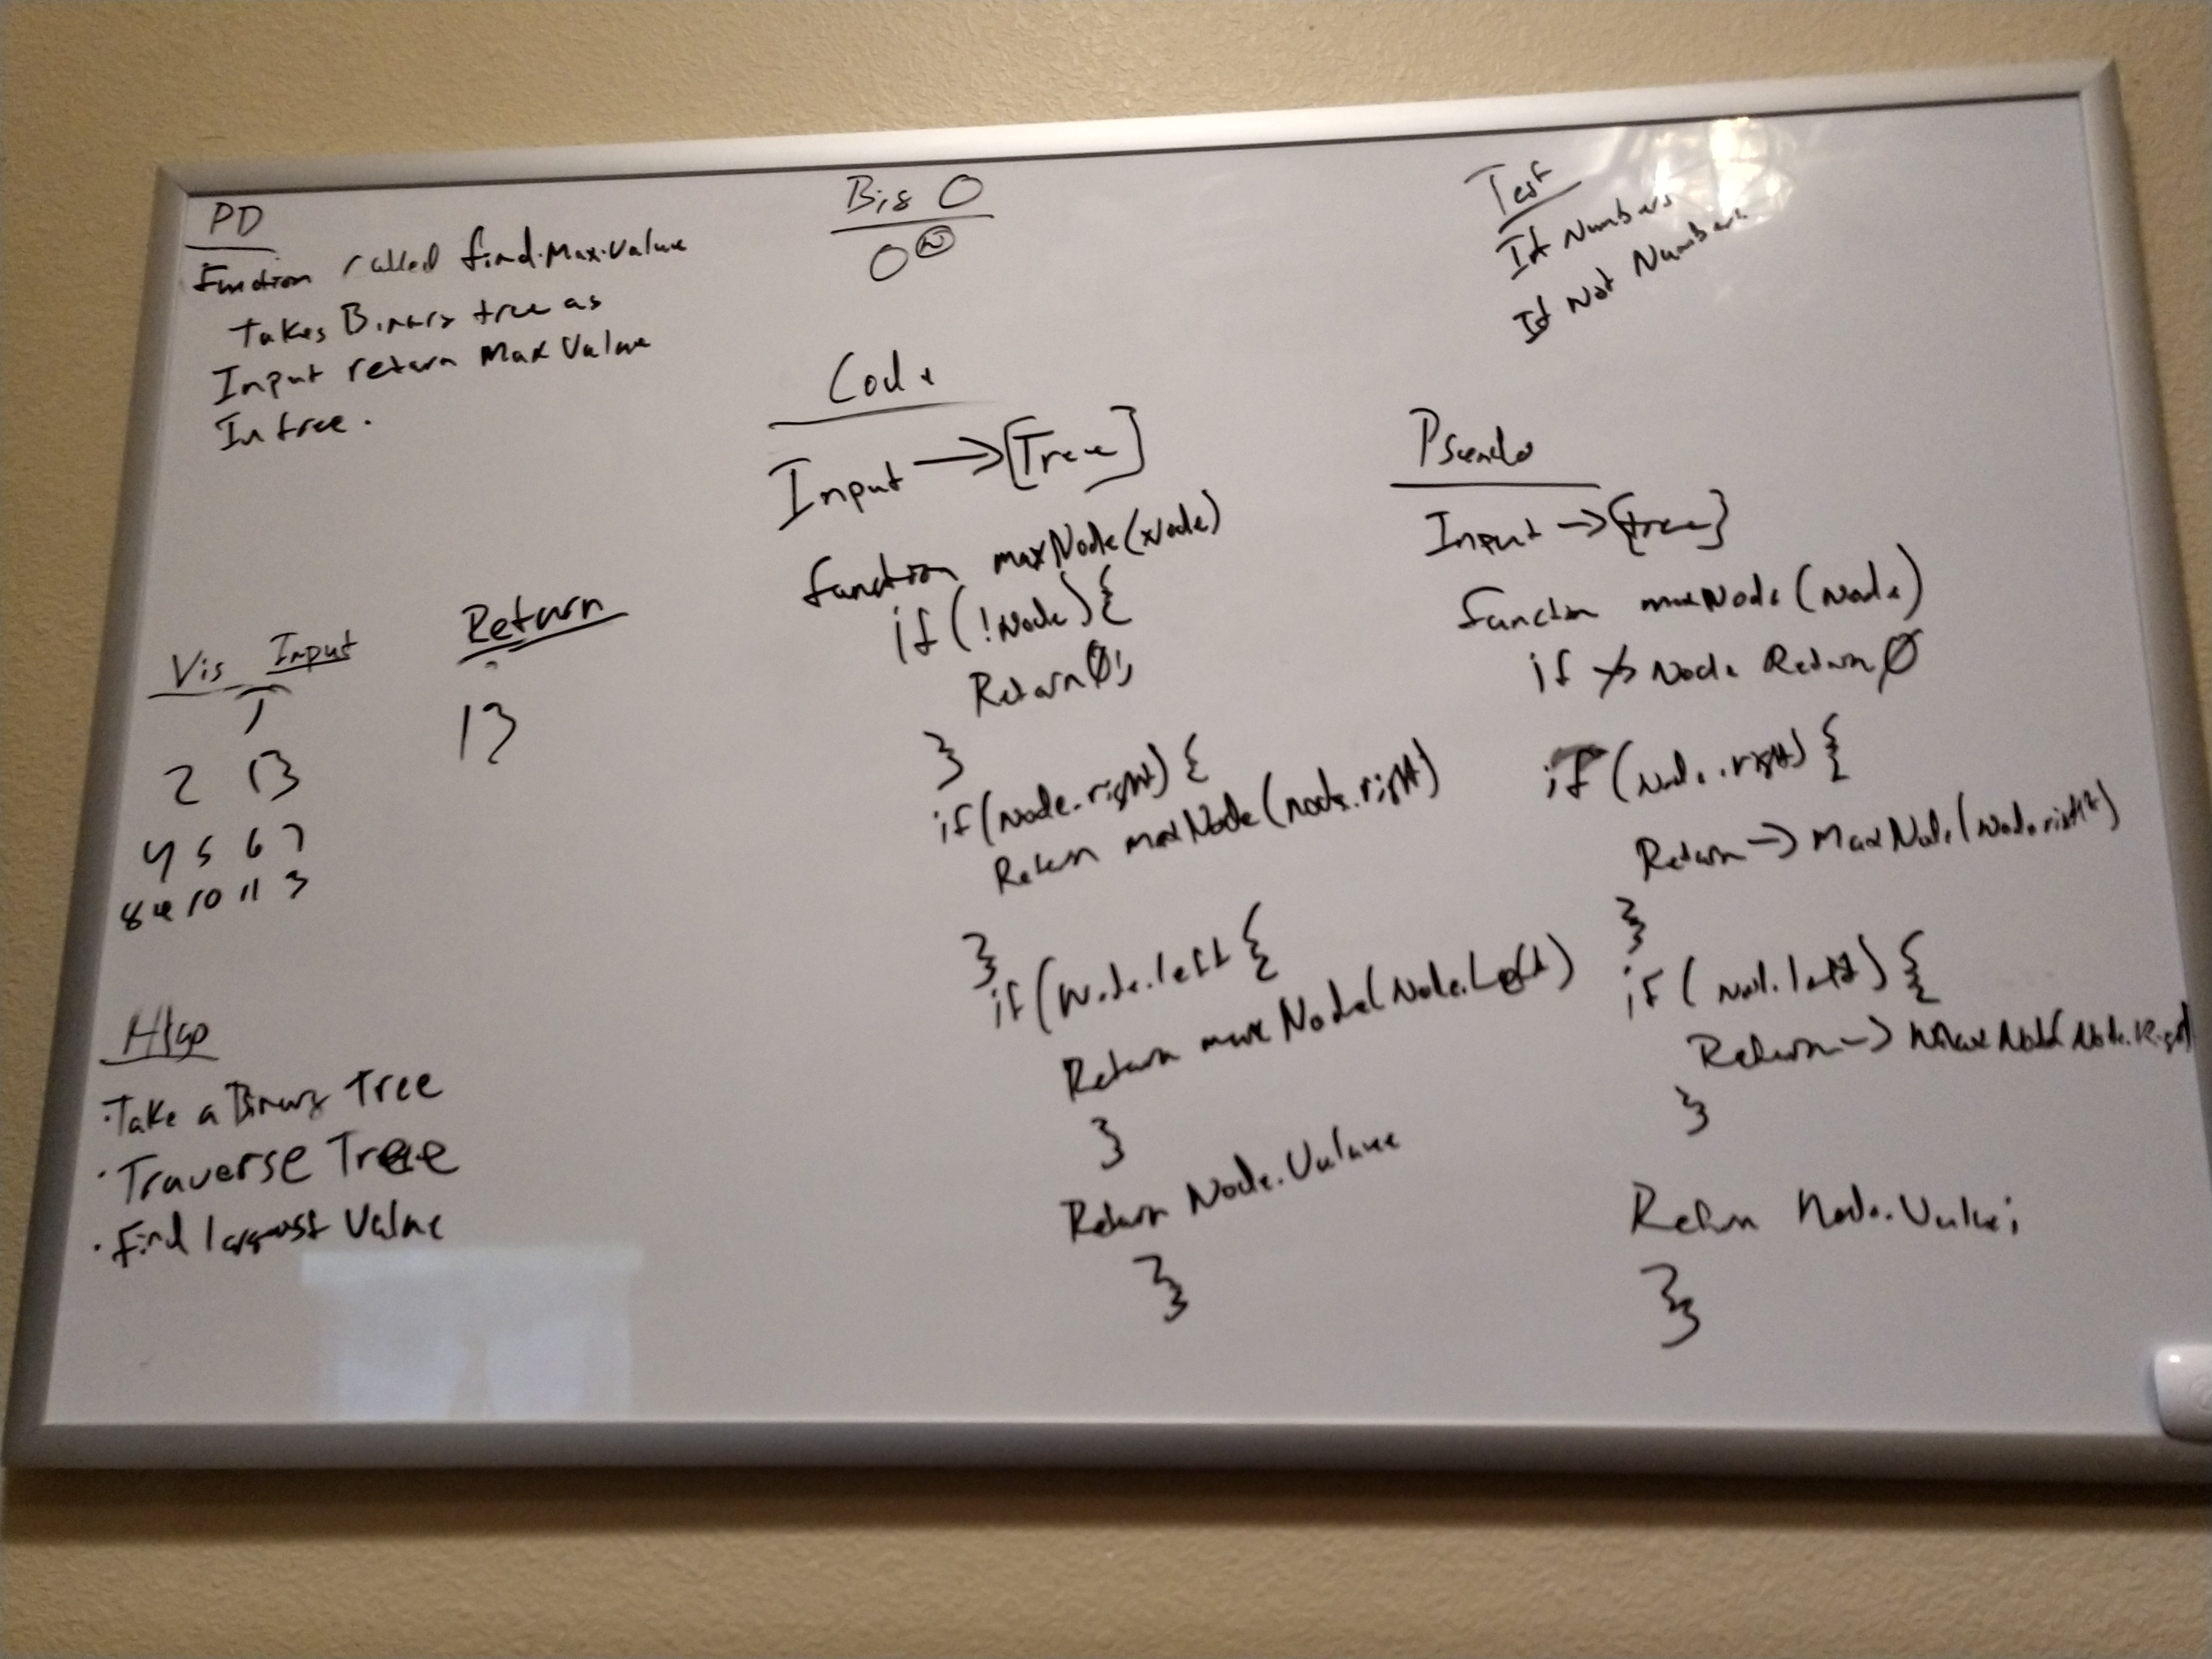 PD
Function called find.Max.Value
Takes Binary tree as
Input return Max Value
In tree.
Vis Input
1
2 13
4 5 6 7
8 10 11 3
Return
13
Algo
· Take a Binary Tree
· Traverse Tree
· Find largest Value
Big O
O(N)
Code
Input → [Tree]
function maxNode(Node)
if (!Node) {
Return 0;
}
if (Node.right) {
Return maxNode(node.right)
}
if (Node.left {
Return maxNode(Node.Left)
}
Return Node.Value
}
Test
If Numbers
If Not Numbers
Pseudo
Input → [tree}
function maxNode (Node)
if Node Return 0
if (Node.right) {
Return → MaxNode(Node.right)
}
if (Node.left) {
Return → MaxNode(Node.Right
}
Return Node.Value;
}